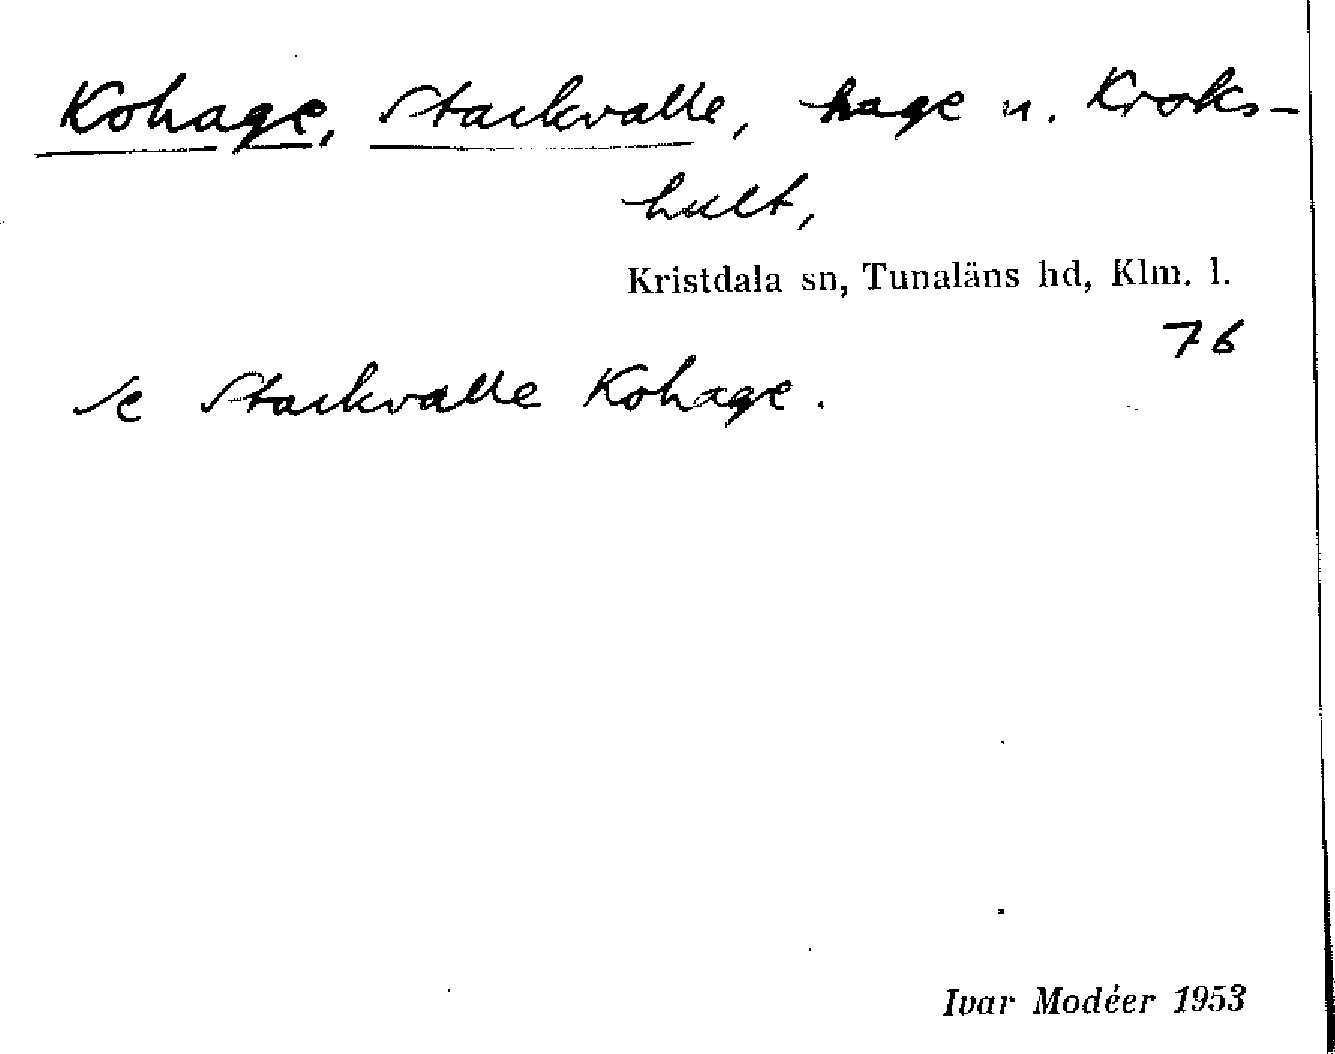 Kohage, Stackvalle, hage u. Kroks-
hult,
Kristdala sn, Tunaläns hd, Klm. l.
76
se Stackvalle Kohage.
Ivar Modéer 1953